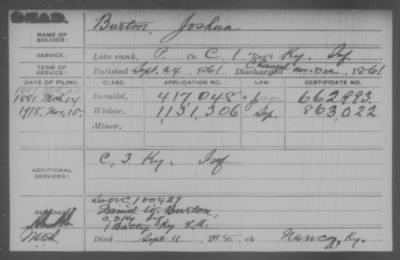 DEAD.
NAME OF SOLDIER: Burton, Joshua
SERVICE: Late rank, P. Co. C, 1 Reg't Ky. Inf
TERM OF SERVICE: Enlisted Sept. 24, 1861 Discharged Nov-Dec, 1861
DATE OF FILING. CLASS. APPLICATION NO. LAW. CERTIFICATE NO.
1881 Mch 14 Invalid, 417,048 662993.
1918. Nov, 15. Widow, 1,131,306 863,022
Minor,
ADDITIONAL SERVICES: C, 3 Ky. Inf
C 100429
Daniel W. Burton,
Died Sept 11, 1918, at Nancy, Ky.